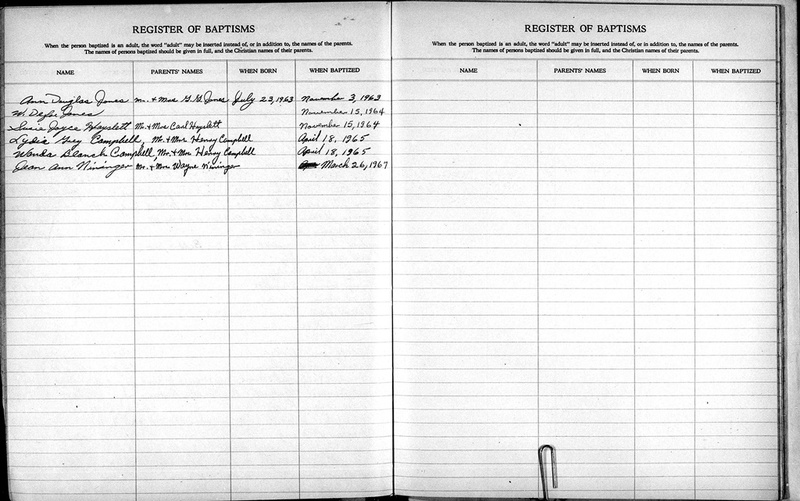 REGISTER OF BAPTISMS
When the person baptized is an adult, the word "adult" may be inserted instead of, or in addition to, the names of the parents.
The names of persons baptized should be given in full, and the Christian names of their parents.
NAME PARENTS' NAMES WHEN BORN WHEN BAPTIZED
Ann Douglas Jones Mr. & Mrs G. G. Jones July 23, 1963 November 3, 1963
W. Jones November 15, 1964
Susie Joyce Hayslett Mr. & Mrs Carl Hayslett November 15, 1964
Lydia Grey Campbell, Mr. & Mrs. Henry Campbell April 18, 1965
Wanda Blanch Campbell, Mr. & Mrs. Henry Campbell April 18, 1965
Jean Ann Nininger Mr. & Mrs. Wayne Nininger March 26, 1967
REGISTER OF BAPTISMS
When the person baptized is an adult, the word "adult" may be inserted instead of, or in addition to, the names of the parents.
The names of persons baptized should be given in full, and the Christian names of their parents.
NAME PARENTS' NAMES WHEN BORN WHEN BAPTIZED